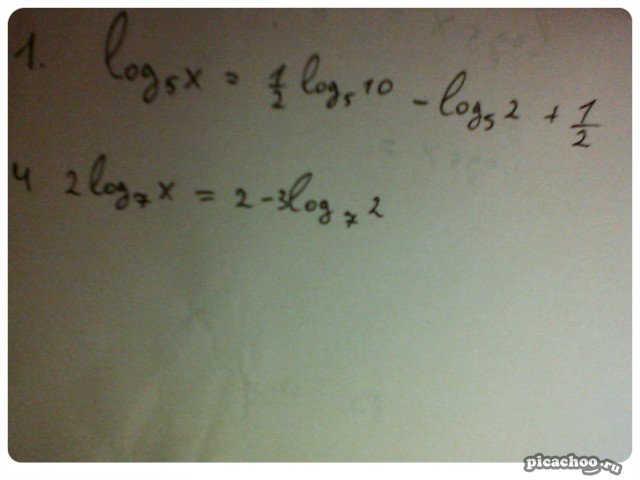 1. log₅x = 1/2 log₅10 - log₅2 + 1/2
4 2log₇x = 2-3log₇2
picachoo.ru